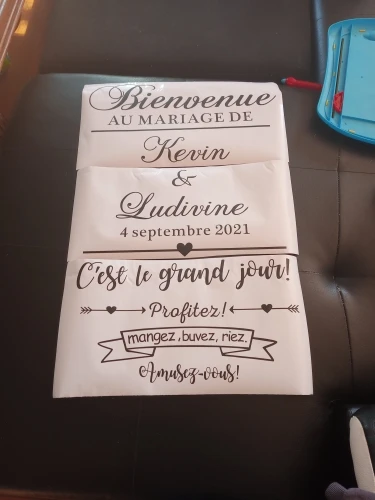 Bienvenue
AU MARIAGE DE
Kevin
&
Ludivine
4 septembre 2021
C'est le grand jour!
Profitez!
mangez, buvez, riez.
Amusez-vous!